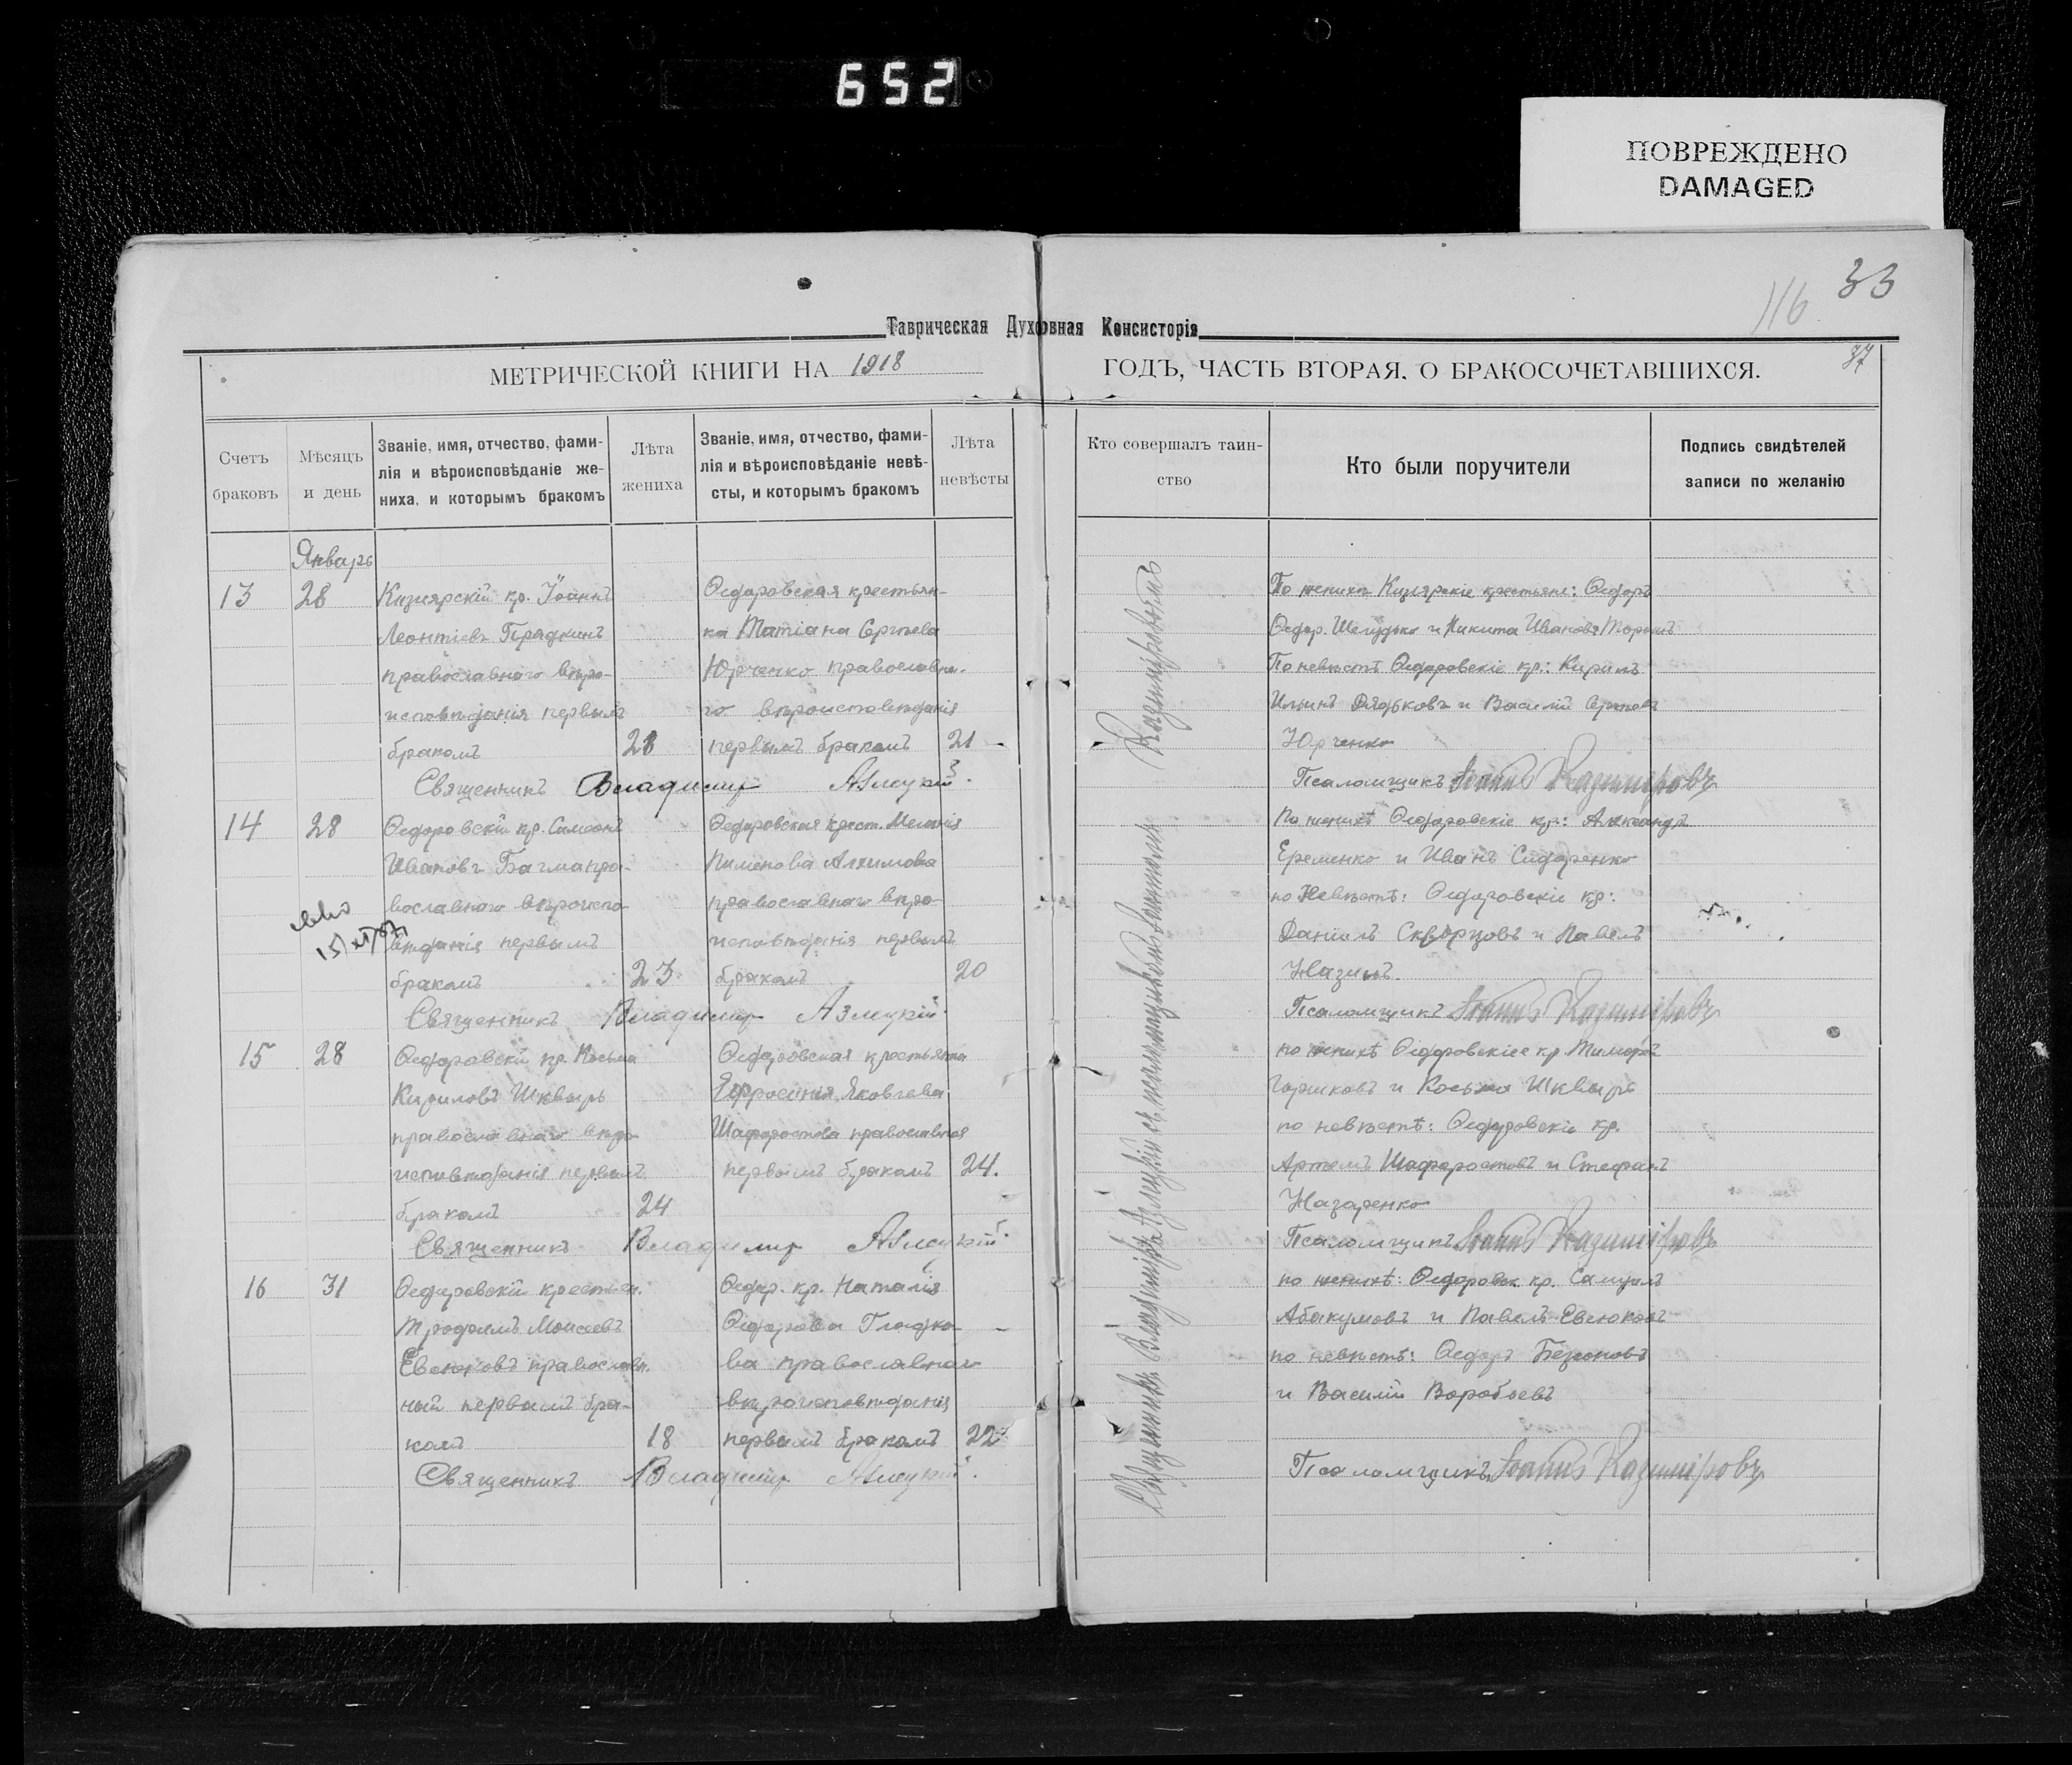 652
ПОВРЕЖДЕНО
DAMAGED
33
116
Таврическая Духовная Консисторія
МЕТРИЧЕСКОЙ КНИГИ НА 1918
ГОДЪ, ЧАСТЬ ВТОРАЯ, О БРАКОСОЧЕТАВШИХСЯ.
37
Счетъ браковъ
Мѣсяцъ и день
Званіе, имя, отчество, фами-
лія и вѣроисповѣданіе же-
ниха, и которымъ бракомъ
Лѣта жениха
Званіе, имя, отчество, фами-
лія и вѣроисповѣданіе невѣ-
сты, и которымъ бракомъ
Лѣта невѣсты
Кто совершалъ таин-
ство
Кто были поручители
Подпись свидѣтелей
записи по желанію
Январь
13 28
Кизіярскій кр. Іоаннъ
Леонтіевъ Прядкинъ
православнаго вѣро-
исповѣданія первымъ
бракомъ 28
Ѳедоровская крестьян-
ка Татіана Сергѣева
Юрченко православна-
го вѣроисповѣданія
первымъ бракомъ 21
Священникъ Владимир Азлецкій
По жениха Кизіярскіе крестьяне: Ѳедоръ
Ѳедор. Шелудько и Никита Ивановъ
По невѣстѣ Ѳедоровскіе кр.: Кирилъ
Ильинъ Дядьковъ и Василій Сергѣевъ
Юрченко
Псаломщикъ Іоаннъ Казиміровъ
14 28
Ѳедоровскій кр. Симеонъ
Ивановъ Багма пра-
вославнаго вѣроиспо-
вѣданія первымъ
бракомъ 23
Ѳедоровская крест. Меланія
Пименова Алимова
православнаго вѣро-
исповѣданія первымъ
бракомъ 20
Священникъ Владимир Азлецкій
По женихѣ Ѳедоровскіе кр.: Александръ
Еременко и Иванъ Сидоренко
по Невѣстѣ: Ѳедоровскіе кр:
Даніилъ Скворцовъ и Павелъ
Назинъ.
Псаломщикъ Іоаннъ Казиміровъ
15 28
Ѳедоровскій кр. Косьма
Кириловъ Шквырь
православнаго вѣро-
исповѣданія первымъ
бракомъ 24
Ѳедоровская крестьянка
Ефросинія Яковлева
Шафоростова православная
первымъ бракомъ 24.
Священникъ Владимир Азлецкій
по женихѣ Ѳедоровскіее кр.
Горшковъ и Косьма Шквырь
по невѣстѣ: Ѳедоровскіе кр.
Артемъ Шафоростовъ и Стефанъ
Назаренко
Псаломщикъ Іоаннъ Казиміровъ
16 31
Ѳедоровскій крестьян.
Трофимъ Моисеевъ
Евсюковъ православн.
ный первымъ бра-
комъ 18
Ѳедор. кр. Наталія
Ѳедорова Гладко-
ва православнаго
вѣроисповѣданія
первымъ бракомъ 22
Священникъ Владимир Азлецкій
по женихѣ: Ѳедоровск. кр. Самуилъ
Абакумовъ и Павелъ Евсюковъ
по невѣстѣ: Ѳедоръ
и Василій Воробьевъ
Псаломщикъ Іоаннъ Казиміровъ
Священникъ Владиміръ Азлецкій съ псаломщикомъ Казиміровымъ